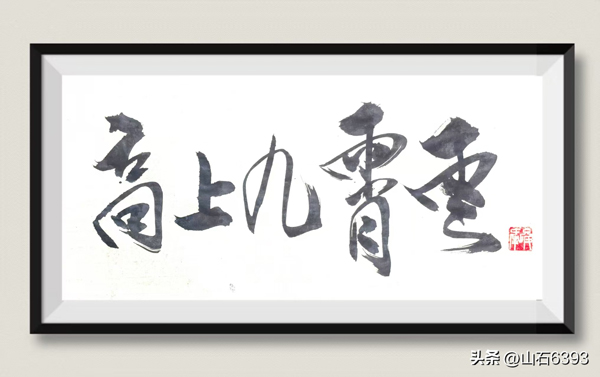 高上九霄雲
头条 @山石6393